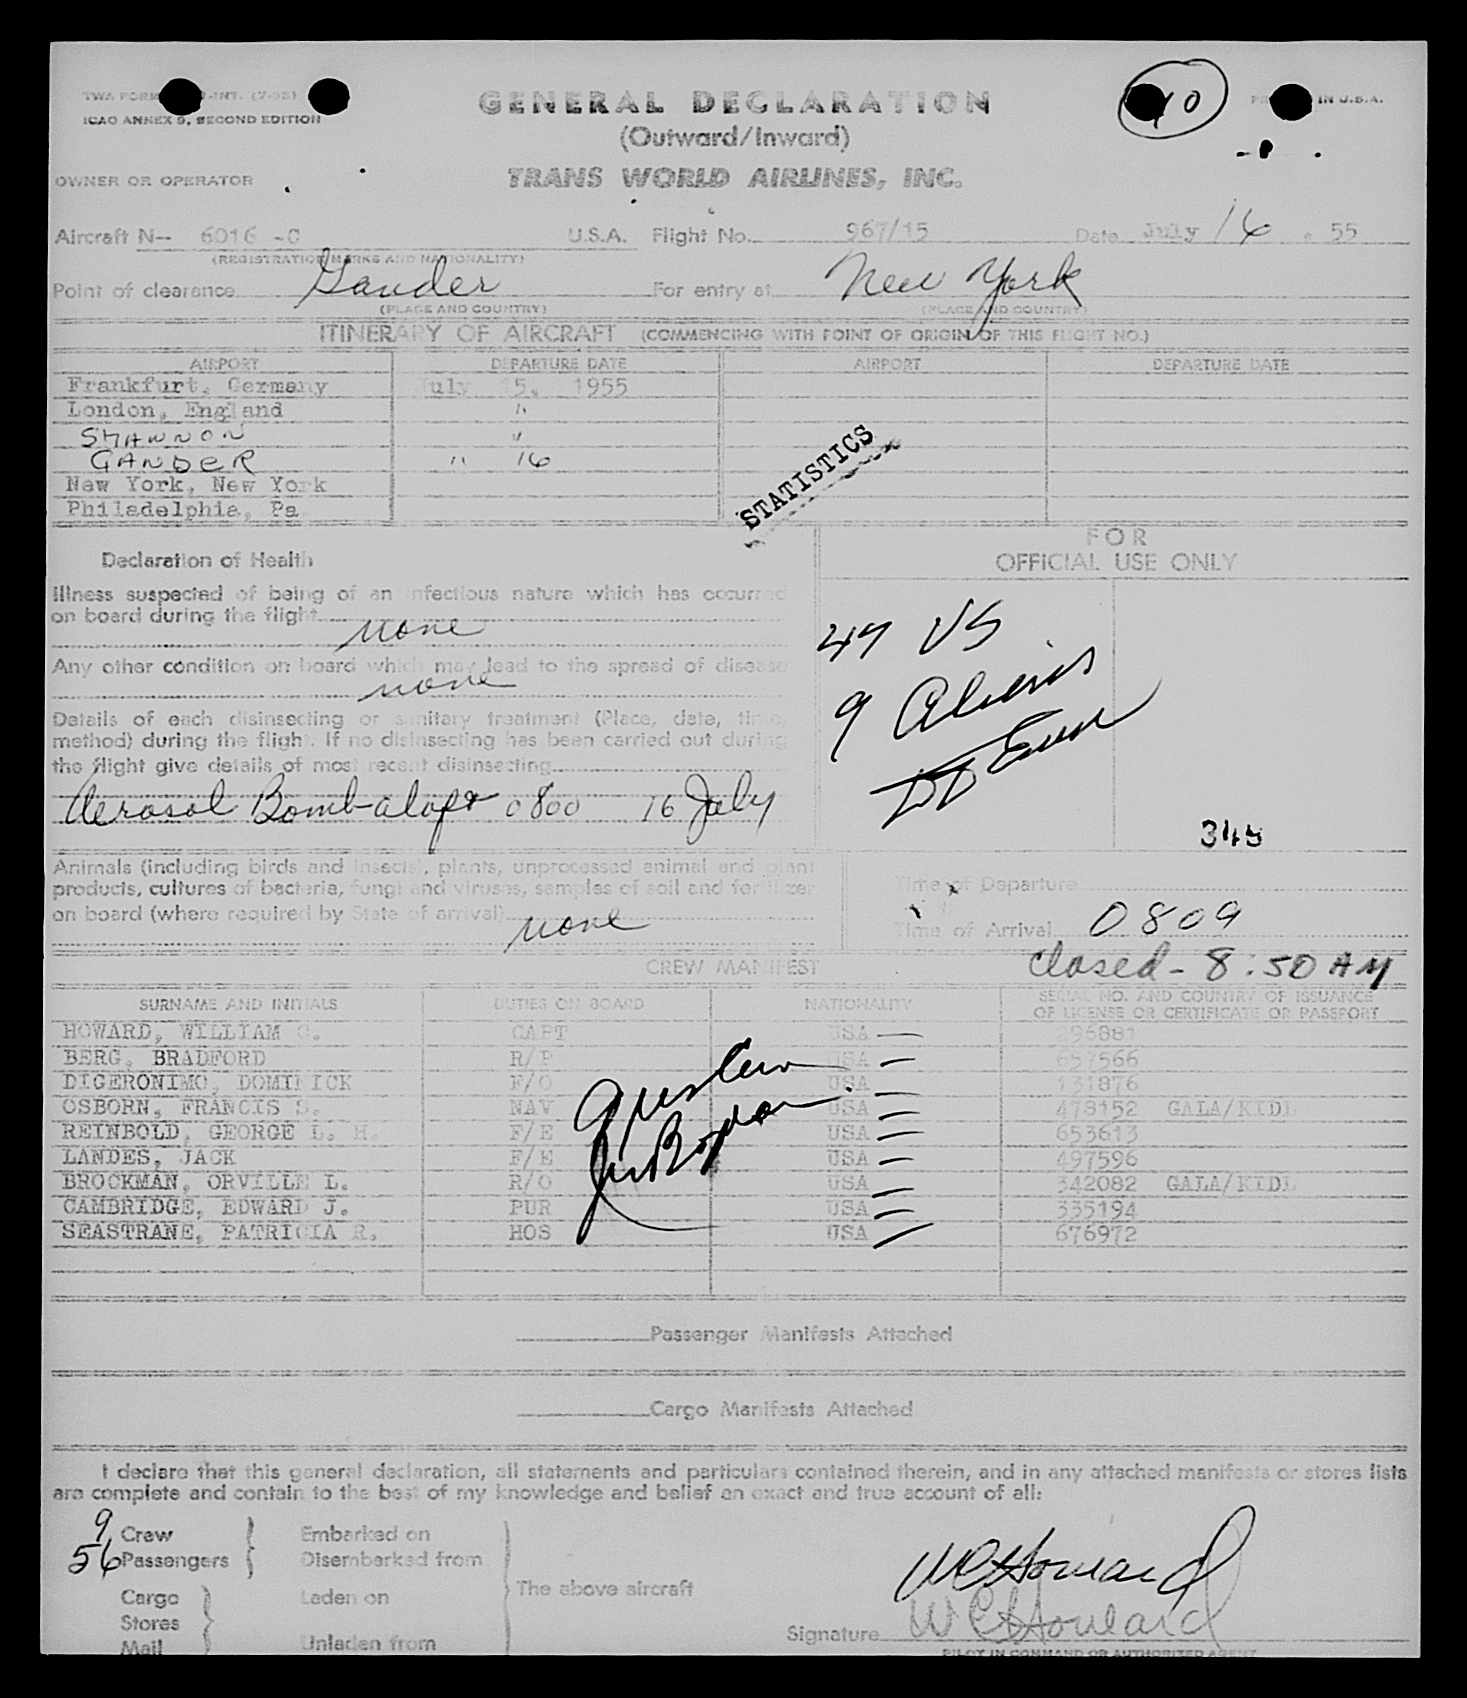 GENERAL DECLARATION
ICAO ANNEX 9, SECOND EDITION
(Outward/Inward)
OWNER OR OPERATOR TRANS WORLD AIRLINES, INC.
Aircraft N-- 6016 -C U.S.A. Flight No. 967/15 Date July 16, 55
(REGISTRATION MARKS AND NATIONALITY)
Point of clearance Gander For entry at New York
(PLACE AND COUNTRY) (PLACE AND COUNTRY)
ITINERARY OF AIRCRAFT (COMMENCING WITH POINT OF ORIGIN OF THIS FLIGHT NO.)
AIRPORT DEPARTURE DATE AIRPORT DEPARTURE DATE
Frankfurt, Germany July 15, 1955
London, England "
SHANNON "
GANDER " 16
New York, New York
Philadelphia, Pa
STATISTICS
Declaration of Health
Illness suspected of being of an infectious nature which has occurred
on board during the flight none
Any other condition on board which may lead to the spread of disease
none
Details of each disinsecting or sanitary treatment (Place, date, time,
method) during the flight. If no disinsecting has been carried out during
the flight give details of most recent disinsecting
Aerosol Bomb aloft 0800 16 July
FOR
OFFICIAL USE ONLY
47 US
9 Aliens
345
Animals (including birds and insects), plants, unprocessed animal and plant
products, cultures of bacteria, fungi and viruses, samples of soil and fertilizer
on board (where required by State of arrival) none
Time of Departure
Time of Arrival 0809
Closed - 8:50 AM
CREW MANIFEST
SURNAME AND INITIALS DUTIES ON BOARD NATIONALITY SERIAL NO. AND COUNTRY OF ISSUANCE
OF LICENSE OR CERTIFICATE OR PASSPORT
HOWARD, WILLIAM C. CAPT USA 296881
BERG, BRADFORD R/P USA 657566
DIGERONIMO, DOMINICK F/O USA 131876
OSBORN, FRANCIS S. NAV USA 478152 GALA/KIDL
REINBOLD, GEORGE L. H. F/E USA 653613
LANDES, JACK F/E USA 497596
BROCKMAN, ORVILLE L. R/O USA 342082 GALA/KIDL
CAMBRIDGE, EDWARD J. PUR USA 335194
SEASTRANE, PATRICIA R. HOS USA 676972
Passenger Manifests Attached
Cargo Manifests Attached
I declare that this general declaration, all statements and particulars contained therein, and in any attached manifests or stores lists
are complete and contain to the best of my knowledge and belief an exact and true account of all:
9 Crew Embarked on
56 Passengers Disembarked from
The above aircraft
Cargo Laden on
Stores
Mail Unladen from
WC Howard
Signature WC Howard
PILOT IN COMMAND OR AUTHORIZED AGENT